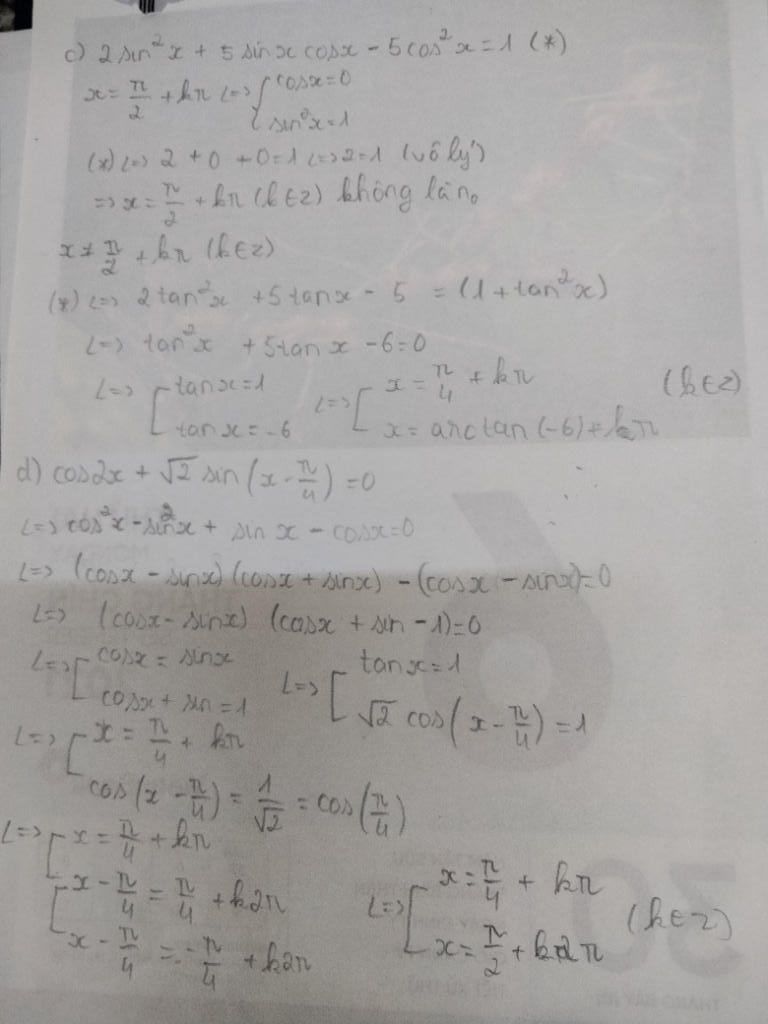 c) 2 sin²x + 5 sinx cosx - 5cos²x = 1 (*)
x = π/2 + kπ <=> { cosx = 0
sin²x = 1
(*) <=> 2 + 0 + 0 = 1 <=> 2 = 1 (vô lý)
=> x = π/2 + kπ (k∈z) không là n₀
x ≠ π/2 + kπ (k∈z)
(*) <=> 2tan²x + 5tanx - 5 = (1 + tan²x)
<=> tan²x + 5tanx - 6 = 0
<=> [ tanx = 1 <=> [ x = π/4 + kπ (k∈z)
tanx = -6 x = arctan(-6) + kπ
d) cos2x + √2 sin(x - π/4) = 0
<=> cos²x - sin²x + sinx - cosx = 0
<=> (cosx - sinx)(cosx + sinx) - (cosx - sinx) = 0
<=> (cosx - sinx) (cosx + sin - 1) = 0
<=> [ cosx = sinx <=> [ tanx = 1
cosx + sin = 1 √2 cos(x - π/4) = 1
<=> [ x = π/4 + kπ
cos(x - π/4) = 1/√2 = cos(π/4)
<=> [ x = π/4 + kπ
[ x - π/4 = π/4 + k2π <=> [ x = π/4 + kπ (k∈z)
x - π/4 = -π/4 + k2π x = π/2 + k2π